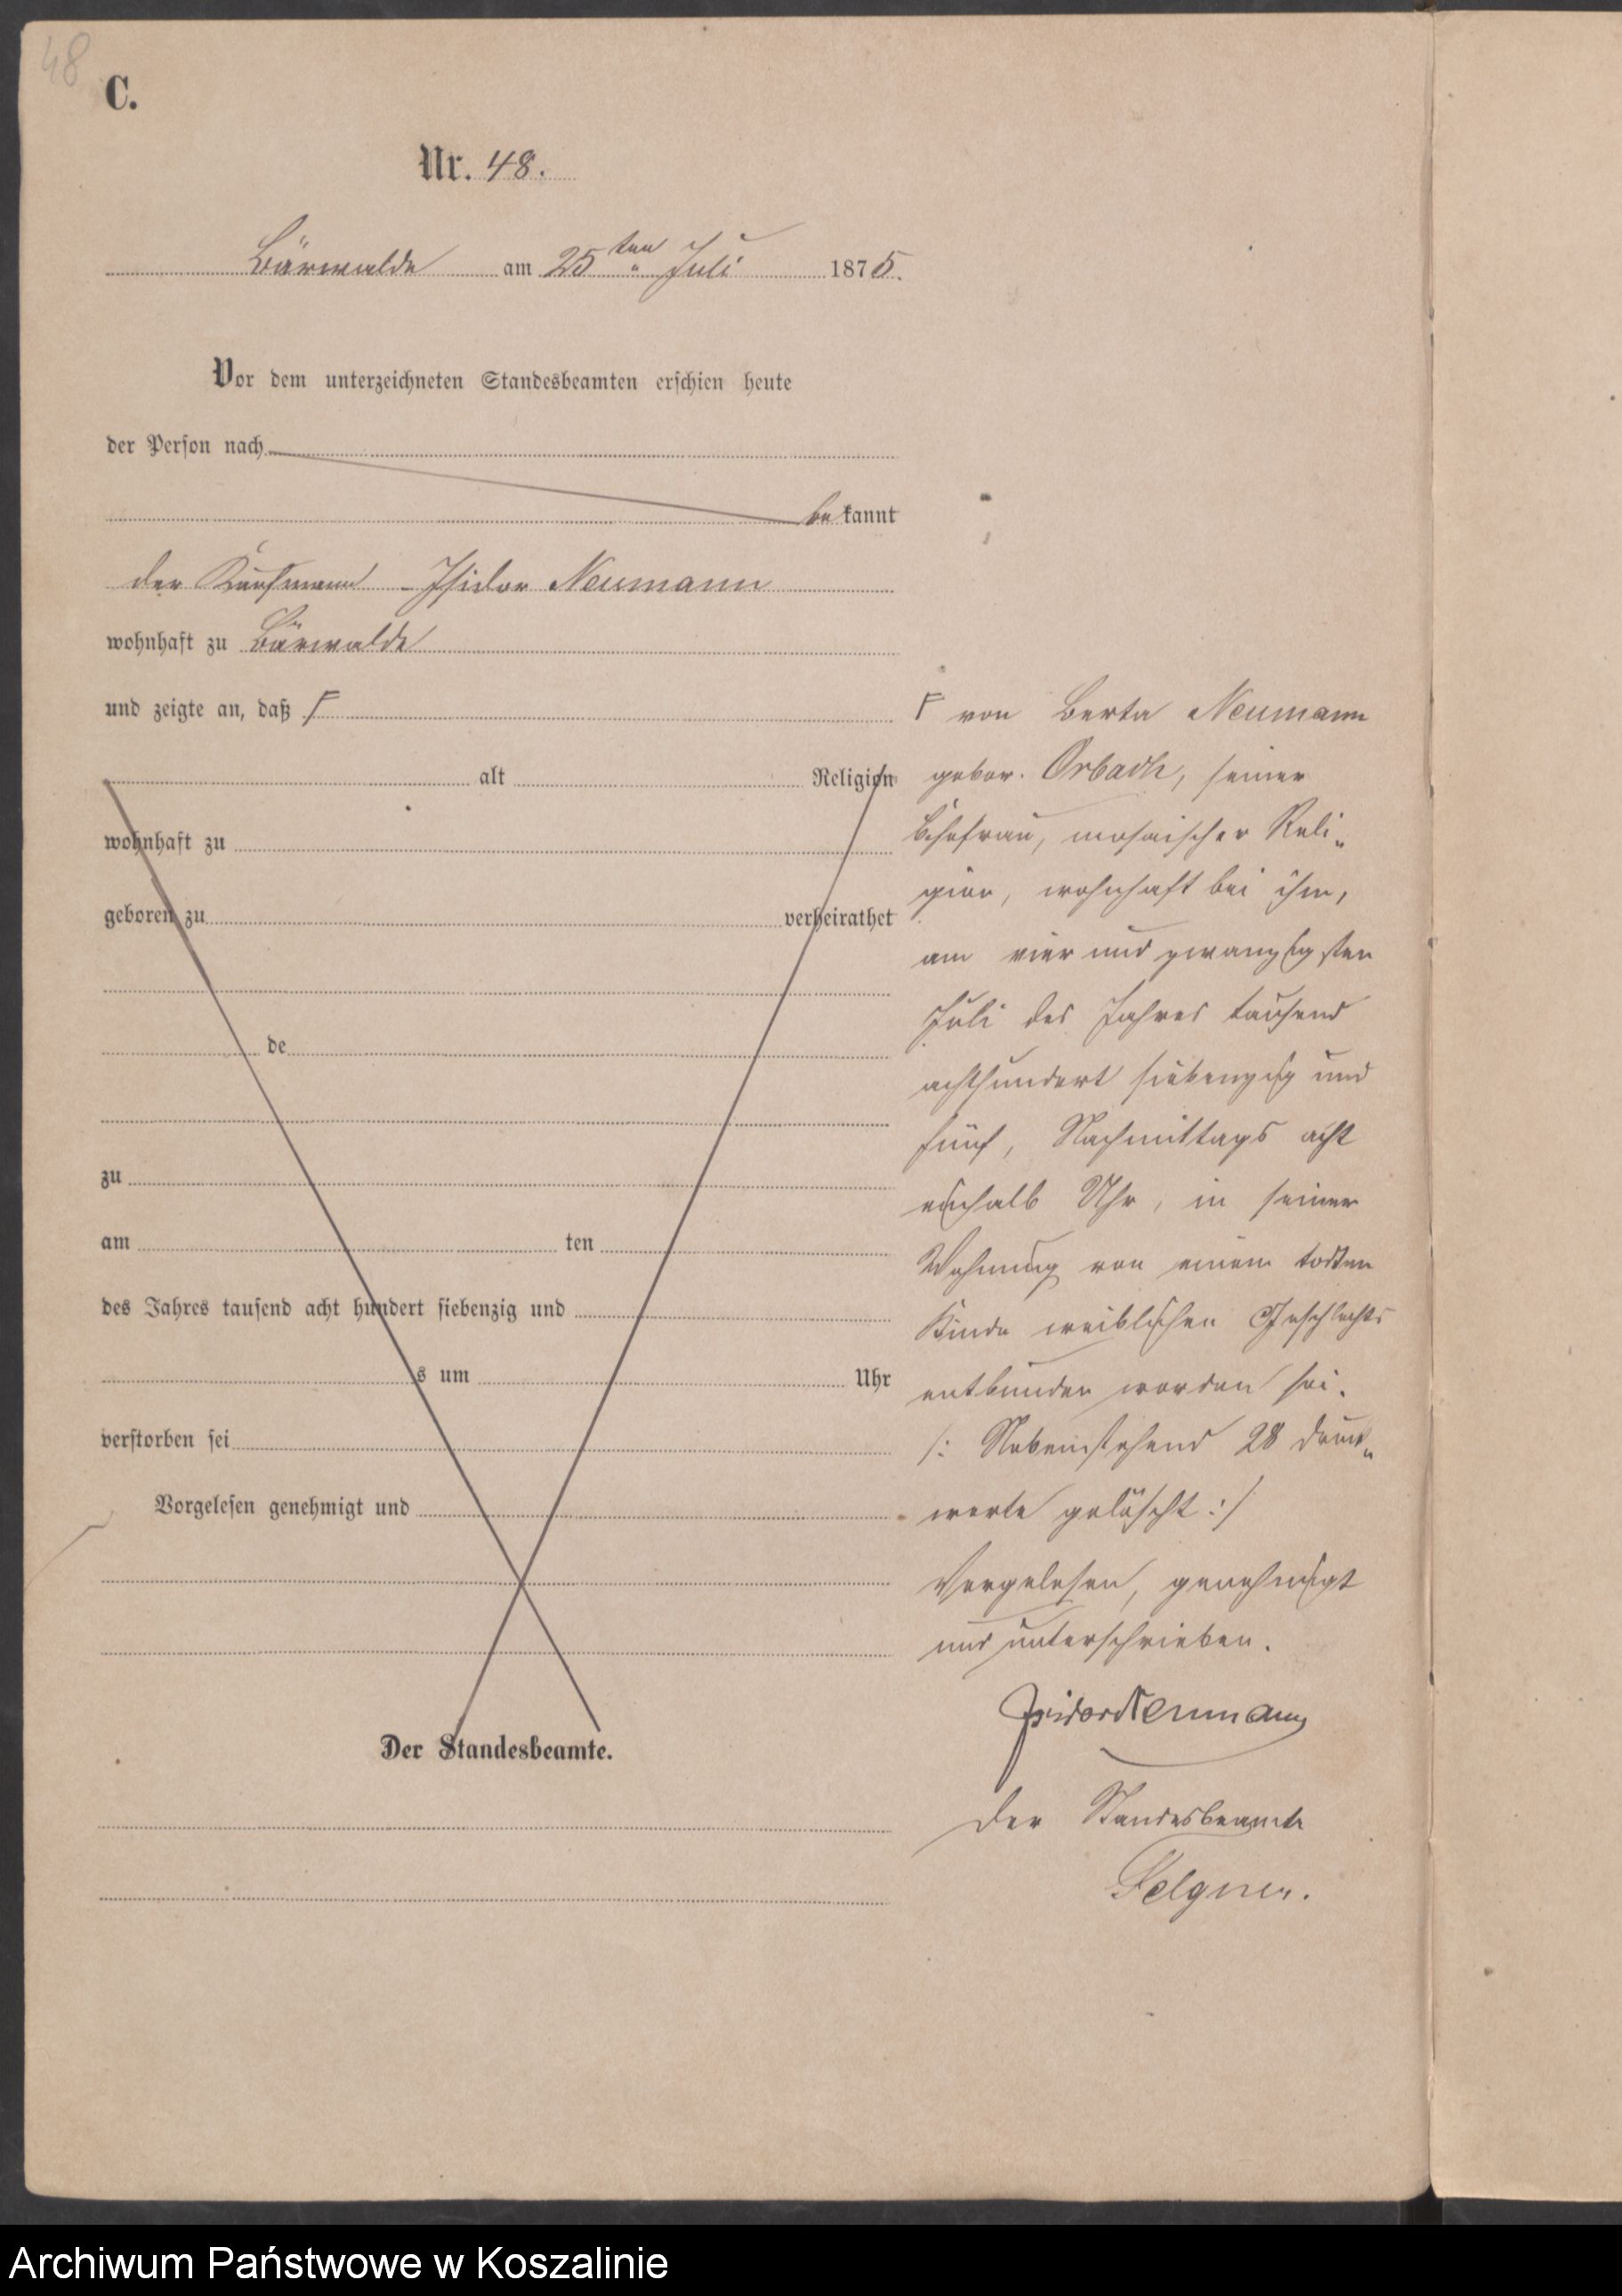 48
C.
Nr. 48.
Bärwalde am 25ten Juli 1875.
Vor dem unterzeichneten Standesbeamten erschien heute
der Person nach
bekannt
der Kaufmann Isidor Neumann
wohnhaft zu Bärwalde
und zeigte an, daß Γ
alt Religion
wohnhaft zu
geboren zu verheirathet
de
zu
am ten
des Jahres tausend acht hundert siebenzig und
s um Uhr
verstorben sei
Vorgelesen genehmigt und
Der Standesbeamte.
Γ von Berta Neumann
gebor. Orbach, seiner
Ehefrau, mosaischer Reli-
gion, wohnhaft bei ihm,
am vier und zwanzigsten
Juli des Jahres tausend
achthundert siebenzig und
fünf, Nachmittags acht
einhalb Uhr, in seiner
Wohnung von einem todten
Kinde weiblichen Geschlechts
entbunden worden sei.
/: Nebenstehend 28 Druck-
worte gelöscht :/
Vorgelesen, genehmigt
und unterschrieben.
Isidor Neumann
Der Standesbeamte
Felgner.
Archiwum Państwowe w Koszalinie